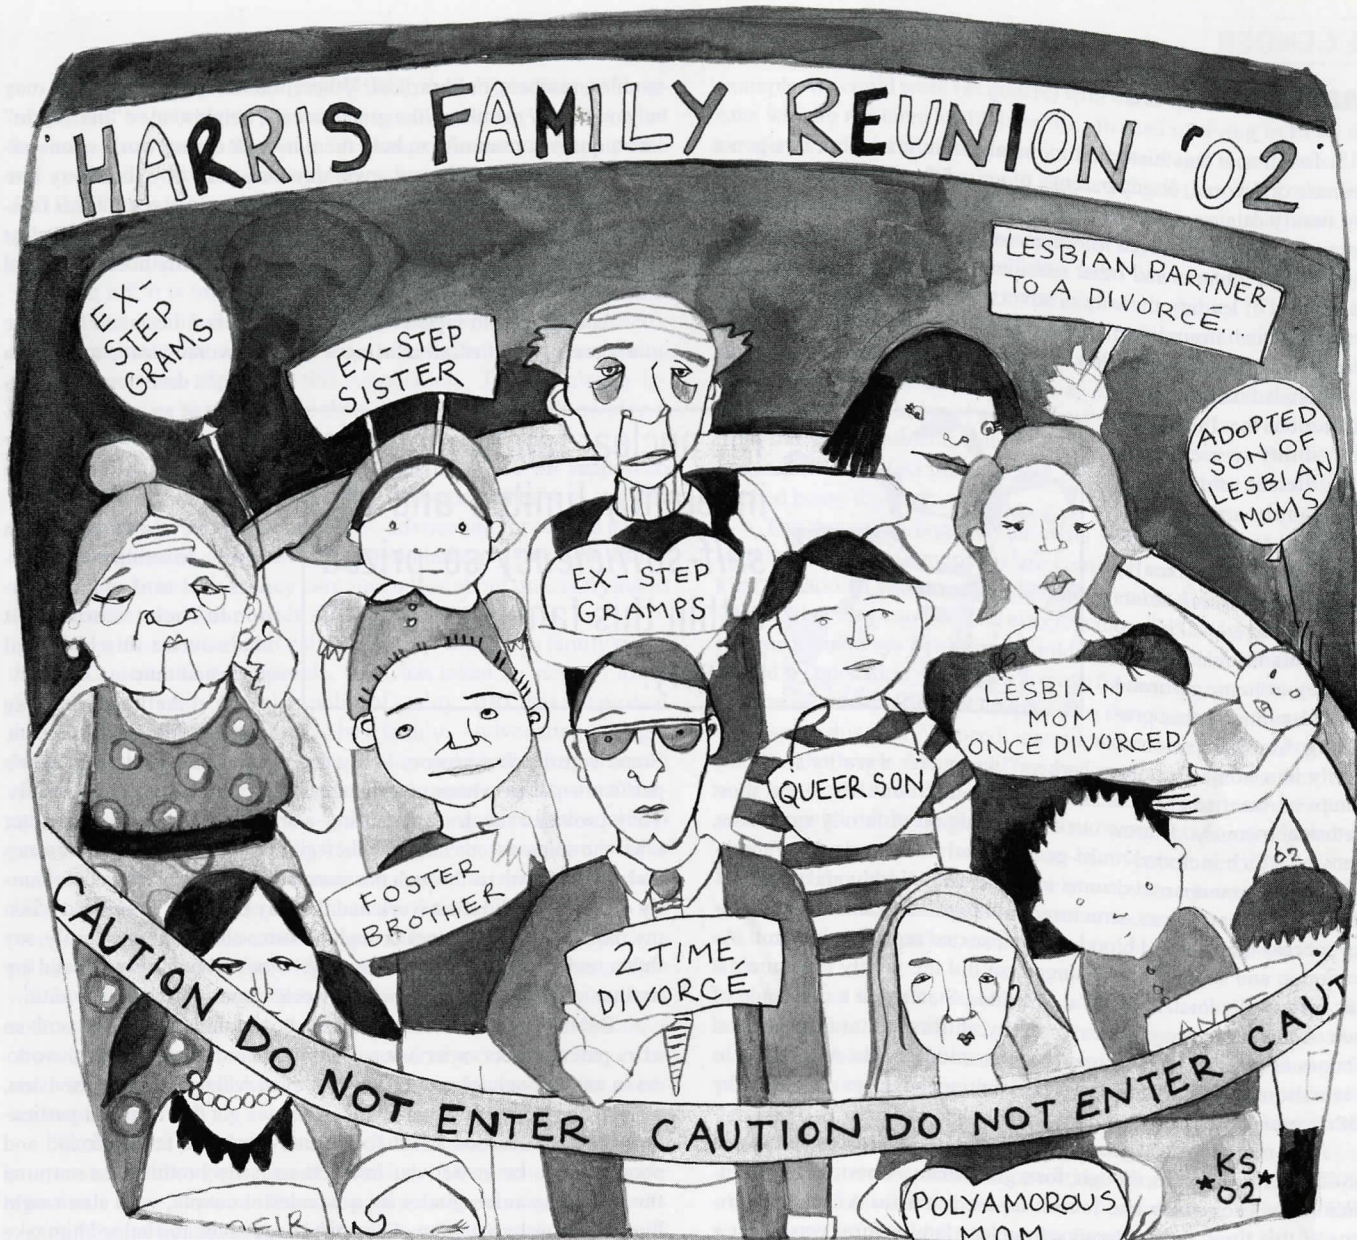 HARRIS FAMILY REUNION '02
EX-
STEP
GRAMS
EX-STEP
SISTER
LESBIAN PARTNER
TO A DIVORCÉ...
ADOPTED
SON OF
LESBIAN
MOMS
EX-STEP
GRAMPS
LESBIAN
MOM
ONCE DIVORCED
QUEER SON
FOSTER
BROTHER
2 TIME
DIVORCE
02
AND
CAUTION DO NOT ENTER CAUTION DO NOT ENTER CAUT
POLYAMOROUS
MOM
KS
*02*